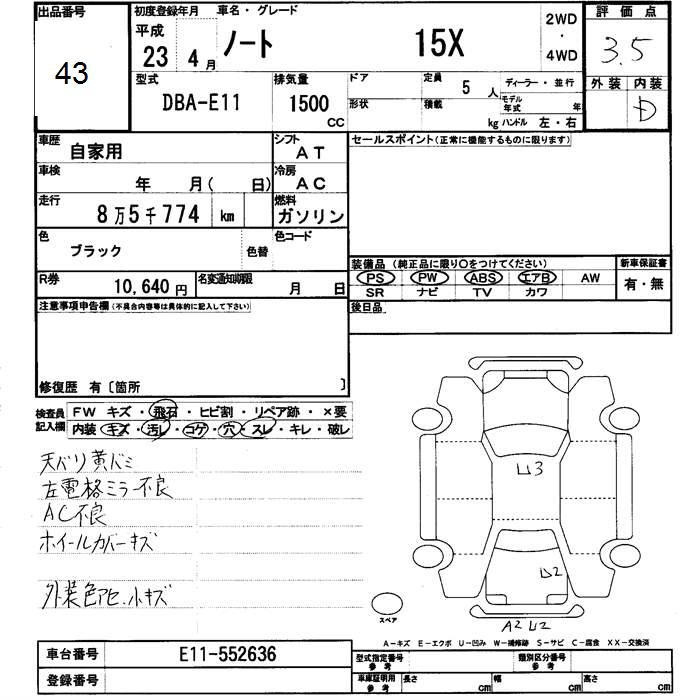 出品番号 43
初度登録年月 車名・グレード
平成 23 4月 ノート 15X 2WD・4WD
評価点 3.5
外装 内装 D
型式 DBA-E11
排気量 1500 CC
ドア 定員 5人 ディーラー・並行
形状 積載 kg モデル年式 年
ハンドル 左・右
車歴 自家用
シフト AT
車検 年 月( 日)
冷房 AC
走行 8万5千774 km
燃料 ガソリン
色 ブラック 色替
色コード
R券 10,640円
名変通知期限 月 日
セールスポイント(正常に機能するものに限ります)
装備品 (純正品に限り○をつけてください)
PS PW ABS エアB AW
SR ナビ TV カワ
新車保証書 有・無
後日品
注意事項申告欄(不具合内容等は具体的に記入して下さい)
修復歴 有〔箇所 〕
検査員記入欄
FW キズ・飛石・ヒビ割・リペア跡・×要
内装 キズ・汚レ・コゲ・穴・スレ・キレ・破レ
天バリ黄バミ
左電格ミラー不良
AC不良
ホイールカバーキズ
外装色アセ.小キズ
U3
U2
A2 U2
スペア
A-キズ E-エクボ U-凹み W-補修跡 S-サビ C-腐食 XX-交換済
車台番号 E11-552636
登録番号
型式指定番号 参考
類別区分番号 参考
車庫証明用 参考 長さ cm 幅 cm 高さ cm